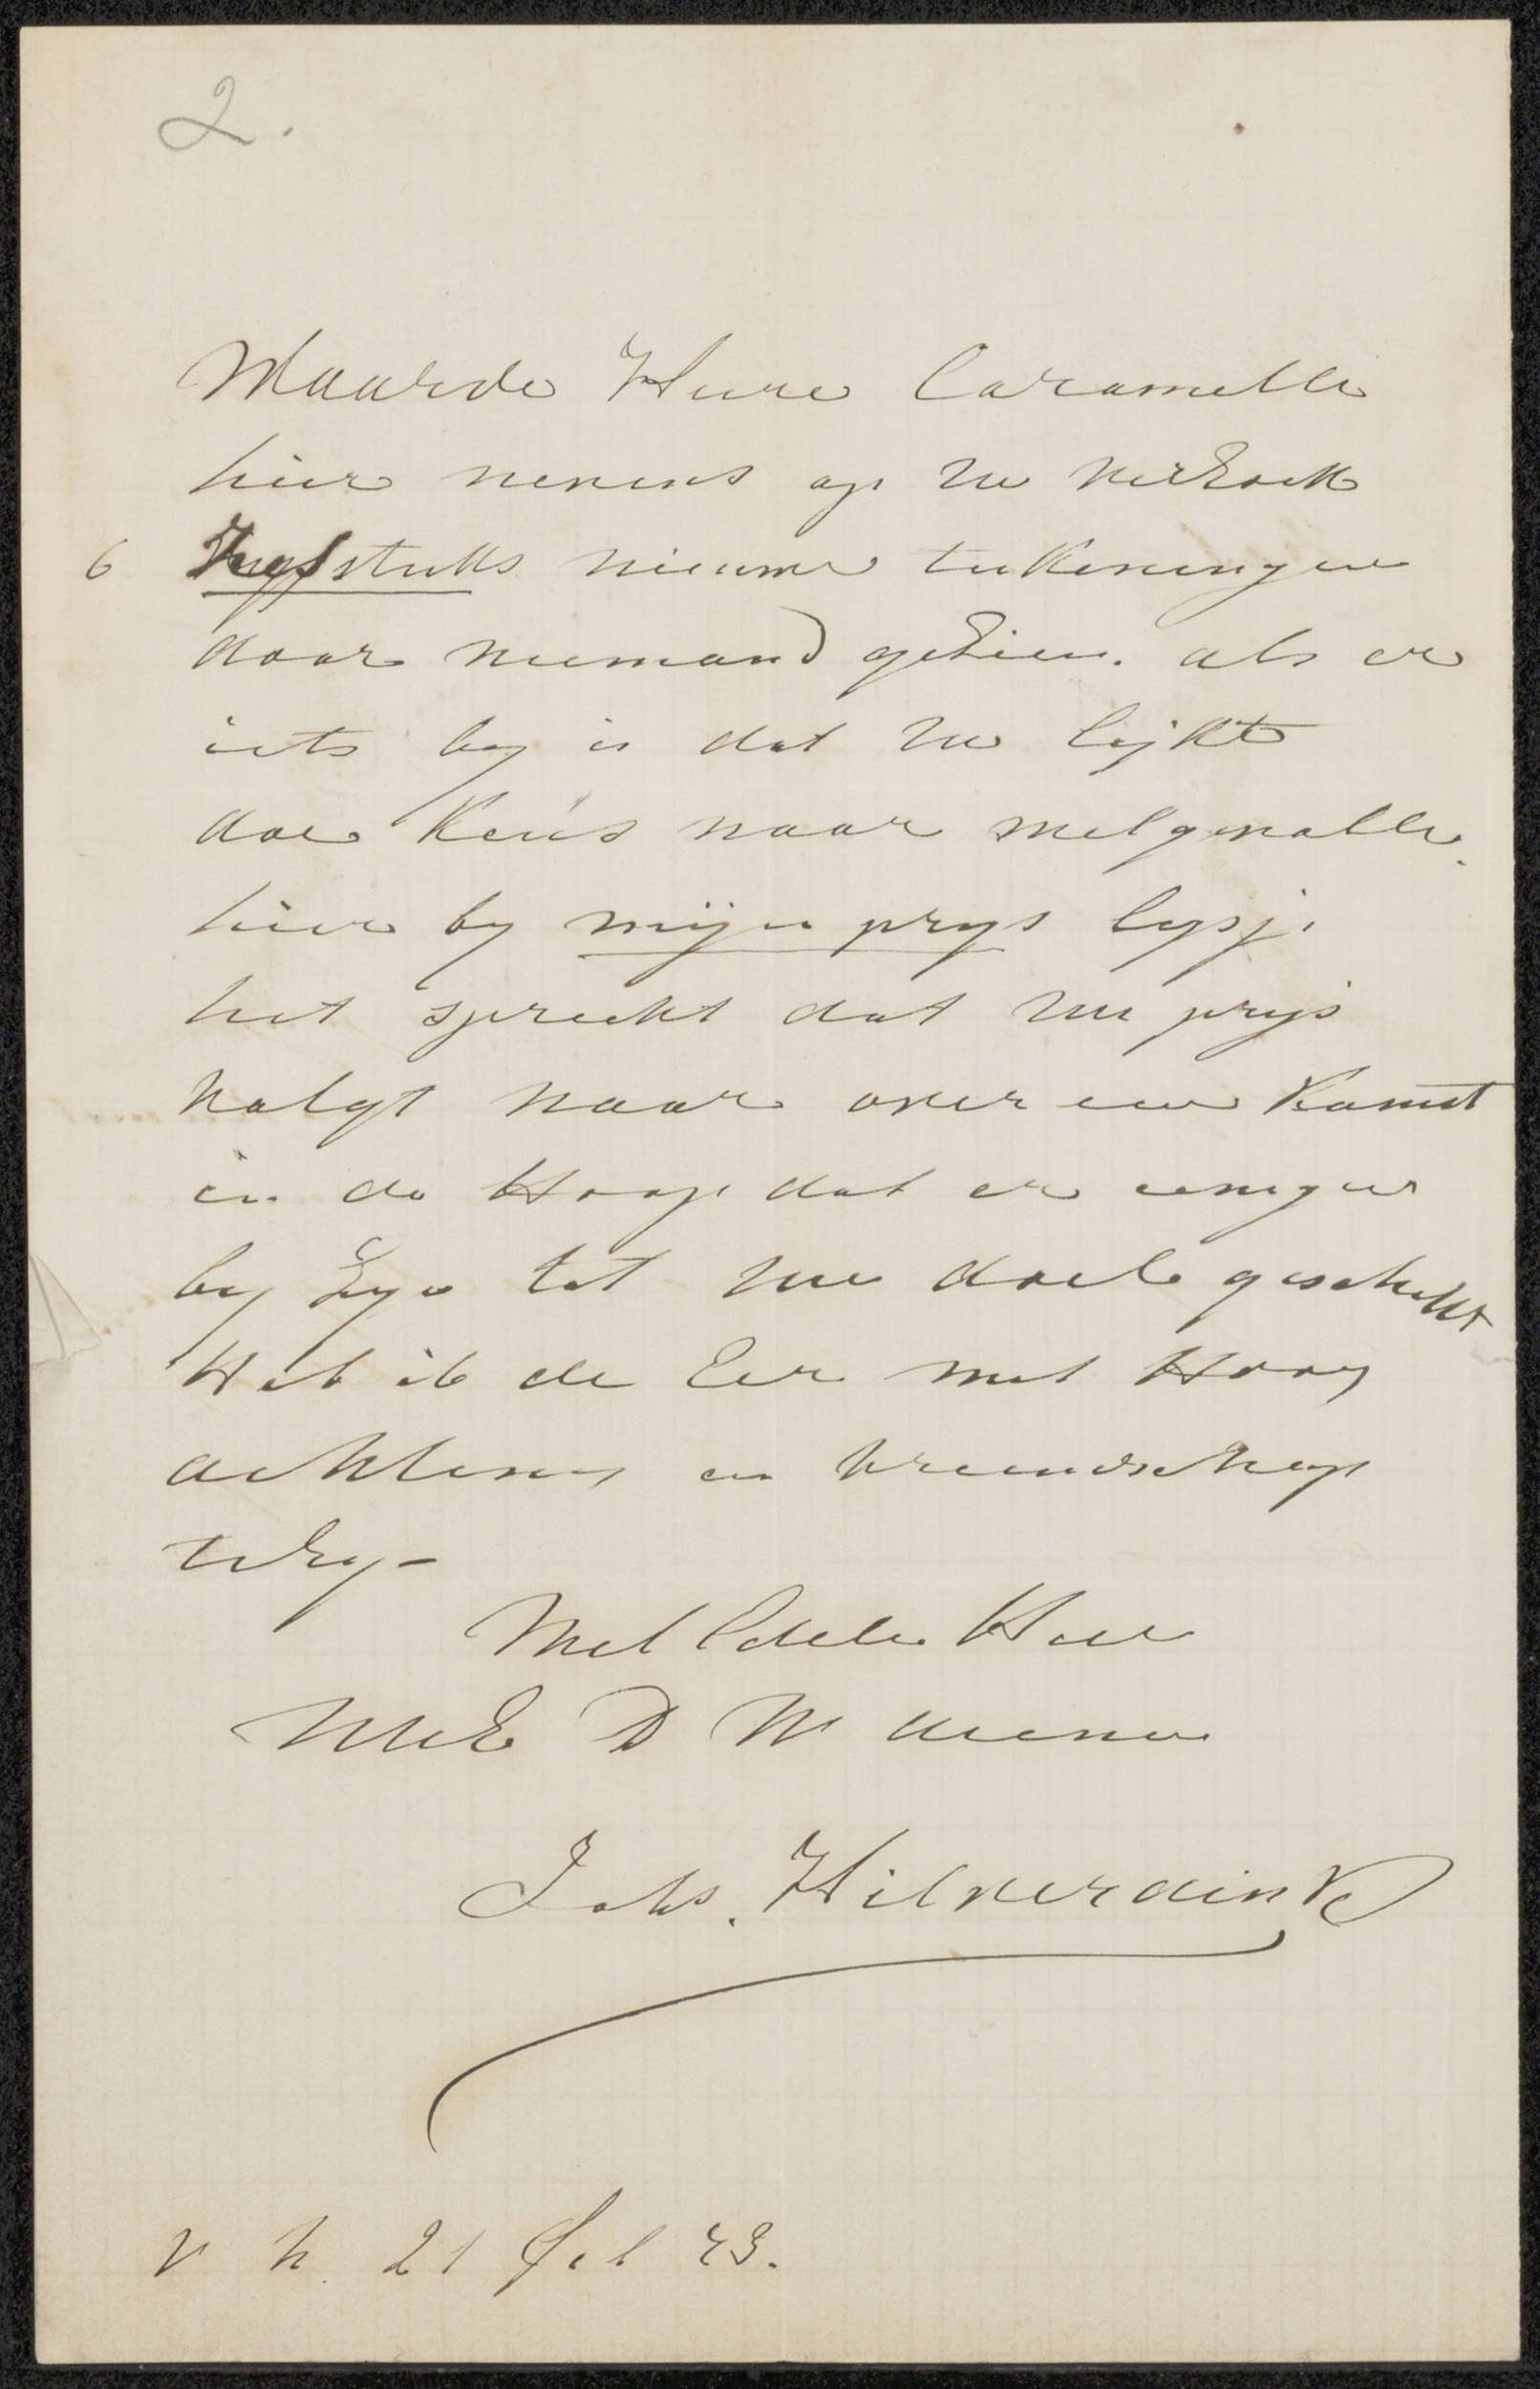 2.
Waarde Heere Caramelli
hier nevens op Uw verzoek
6 stuks nieuwe teekeningen
door niemand gezien. als er
iets by is dat Uw lijkt
doe keus naar welgevalle.
hier by mijn prys lysje
het spreekt dat Uw prys
volgt naar over een komst
in de Hoop dat er eenigen
by Zyn tot Uw doel geschikt
Heb ik de Eer met Hoog
achting en vriendschap
te Zyn -
Wel Edele Heer
UWE D W dienaar
Johs. Hilverdink
v h 21 Feb 93.